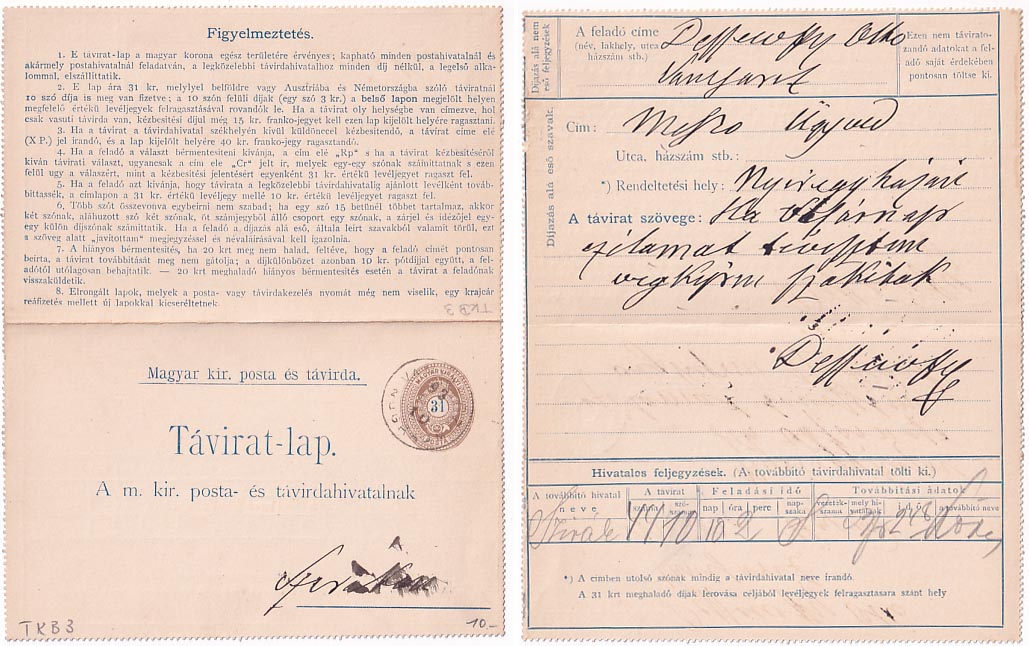 Figyelmeztetés.
1. E távirat-lap a magyar korona egész területére érvényes; kapható minden postahivatalnál és
akármely postahivatalnál feladatván, a legközelebbi távirdahivatalhoz minden díj nélkül, a legelső alka-
lommal, elszállittatik.
2. E lap ára 31 kr. melylyel belföldre vagy Ausztriába és Németországba szóló táviratnál
10 szó díja is meg van fizetve; a 10 szón felüli díjak (egy szó 3 kr.) a belső lapon megjelölt helyen
megfelelő értékű levéljegyek felragasztásával rovandók le. Ha a távirat oly helységbe van címezve, hol
csak vasuti távirda van, kézbesitési díjul még 15 kr. franko-jegyet kell ezen lap kijelölt helyére ragasztani.
3. Ha a távirat a távirdahivatal székhelyén kívül küldönccel kézbesitendő, a távirat címe elé
(X P.) jel irandó, és a lap kijelölt helyére 40 kr. franko-jegy ragasztandó.
4. Ha a feladó a választ bérmentesiteni kívánja, a cím elé „Rp" s ha a távirat kézbesitéséről
kiván távirati választ, ugyancsak a cím ele „Cr" jelt ir, melyek egy-egy szónak számíttatnak s ezen
felül ugy a válaszért, mint a kézbesitési jelentésért egyenként 31 kr. értékű levéljegyet ragaszt fel.
5. Ha a feladó azt kivánja, hogy távirata a legközelebbi távirdahivatalig ajánlott levélként továb-
bittassék, a címlapon a 31 kr. értékű levéljegy mellé 10 kr. értékű levéljegyet ragaszt fel.
6. Több szót összevonva egybeirni nem szabad; ha egy szó 15 betünél többet tartalmaz, akkor
két szónak, aláhuzott szó két szónak, öt számjegyből álló csoport egy szónak, a zárjel és idézőjel egy-
egy külön díjszónak számittatik. Ha a feladó a díjazás alá eső, általa leirt szavakból valamit töröl, ezt
a szöveg alatt „javitottam" megjegyzéssel és névaláirásával kell igazolnia.
7. A hiányos bérmentesités, ha 20 krt meg nem halad, feltéve, hogy a feladó címét pontosan
beírta, a távirat továbbitását meg nem gátolja; a díjkülönbözet azonban 10 kr. pótdíjjal együtt, a fel-
adótól utólagosan behajtatik. — 20 krt meghaladó hiányos bérmentesités esetén a távirat a feladónak
visszaküldetik.
8. Elrongált lapok, melyek a posta- vagy távirdakezelés nyomát még nem viselik, egy krajcár
reáfizetés mellett új lapokkal kicseréltetnek.
TKB3
Magyar kir. posta és távirda.
31
Távirat-lap.
A m. kir. posta- és távirdahivatalnak
TKB3
10.-
Díjazás alá nem
eső feljegyzések
A feladó címe
(név, lakhely, utca
házszám stb.)
Dessewffy Otto
Ezen nem táviratо-
zandó adatokat a fel-
adó saját érdekében
pontosan töltse ki.
Díjazás alá eső szavak.
Cím:
Utca, házszám stb.:
*) Rendeltetési hely: Nyiregyházán
A távirat szövege: Ha
Dessewffy
Hivatalos feljegyzések. (A továbbító távirdahivatal tölti ki.)
A továbbító hivatal neve
A távirat
száma
szó-
száma
Feladási idő
nap
óra
perc
nap-
szaka
Továbbitási adatok
vezeték-
száma
mely hi-
vatalnak
idő
a továbbitó neve
Szirák 44 10 10 2
*) A címben utolsó szónak mindig a távirdahivatal neve irandó.
A 31 krt meghaladó díjak lerovása céljából levéljegyek felragasztasara szánt hely